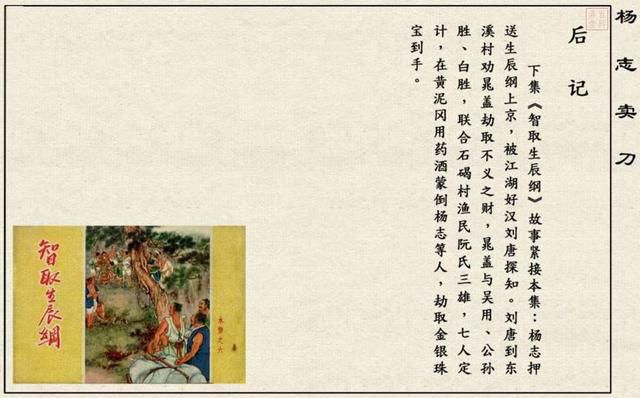 杨志卖刀
后记
下集《智取生辰纲》故事紧接本集：杨志押
送生辰纲上京，被江湖好汉刘唐探知。刘唐到东
溪村劝晁盖劫取不义之财，晁盖与吴用、公孙
胜、白胜，联合石碣村渔民阮氏三雄，七人定
计，在黄泥冈用药酒蒙倒杨志等人，劫取金银珠
宝到手。
智取生辰綱
水滸之六